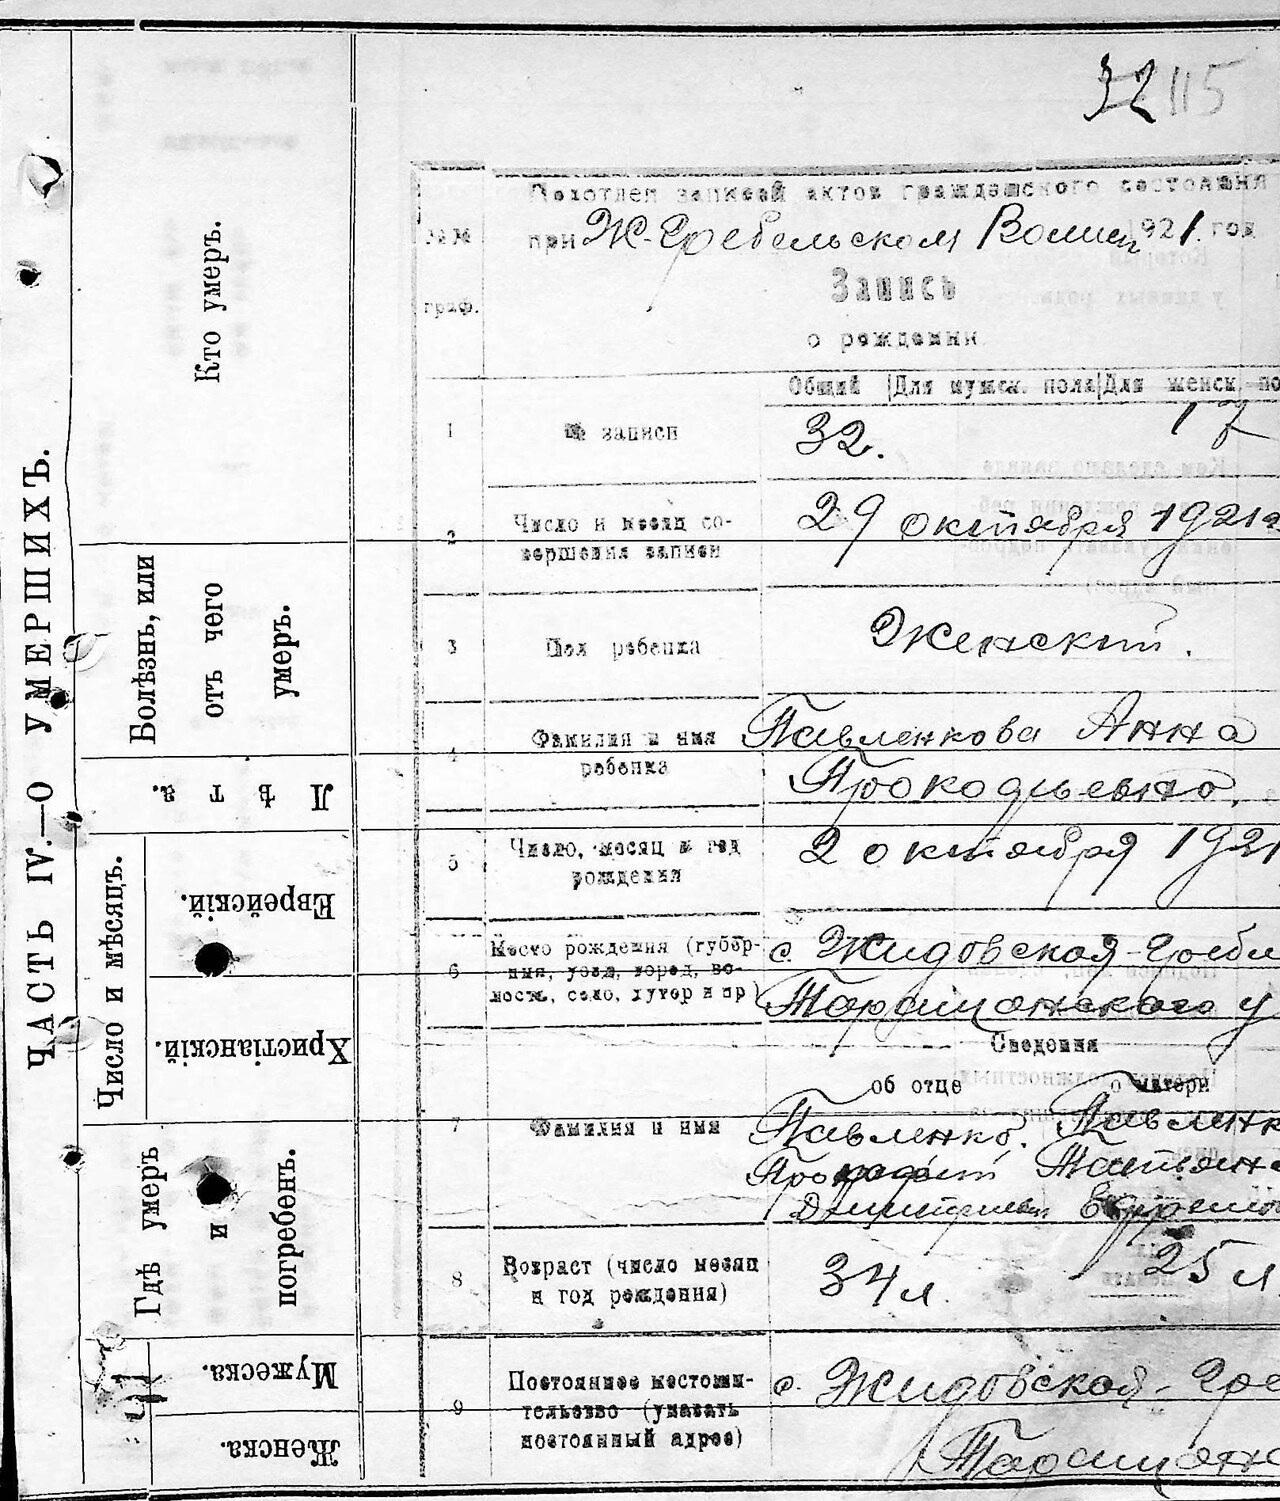 32 115
ЧАСТЬ IV.—О УМЕРШИХЪ.
Кто умеръ.
Болѣзнь, или
отъ чего
умеръ.
Лѣта.
Число и мѣсяцъ.
Еврейскій.
Христіанскій.
Гдѣ умеръ
и
погребенъ.
Мужеска.
Женска.
№№
граф.
Подотдел записей актов гражданского состояния
при Ж-Гребельском Волисп 1921. год
Запись
о рождении
Общий Для мужск. пола Для женск. по
1 № записи 32. 17
2 Число и месяц со-
вершения записи
29 октября 1921 г
3 Пол ребенка Женский.
4 Фамилия и имя
ребенка
Павленкова Анна
Прокофьевна.
5 Число, месяц и год
рождения
2 октября 1921
6 Место рождения (губер-
ния, уезд, город, во-
лость, село, хутор и пр)
с. Жидовская-Гребл
Таращанского у
Сведения
об отце о матери
7 Фамилия и имя
Павленко. Павленк
Прокофий Татьяна
Дмитриевич Ефремов
8 Возраст (число месяц
и год рождения)
34 л. 25 л
9 Постоянное местожи-
тельство (указать
постоянный адрес)
с. Жидовская-Гре
Таращан